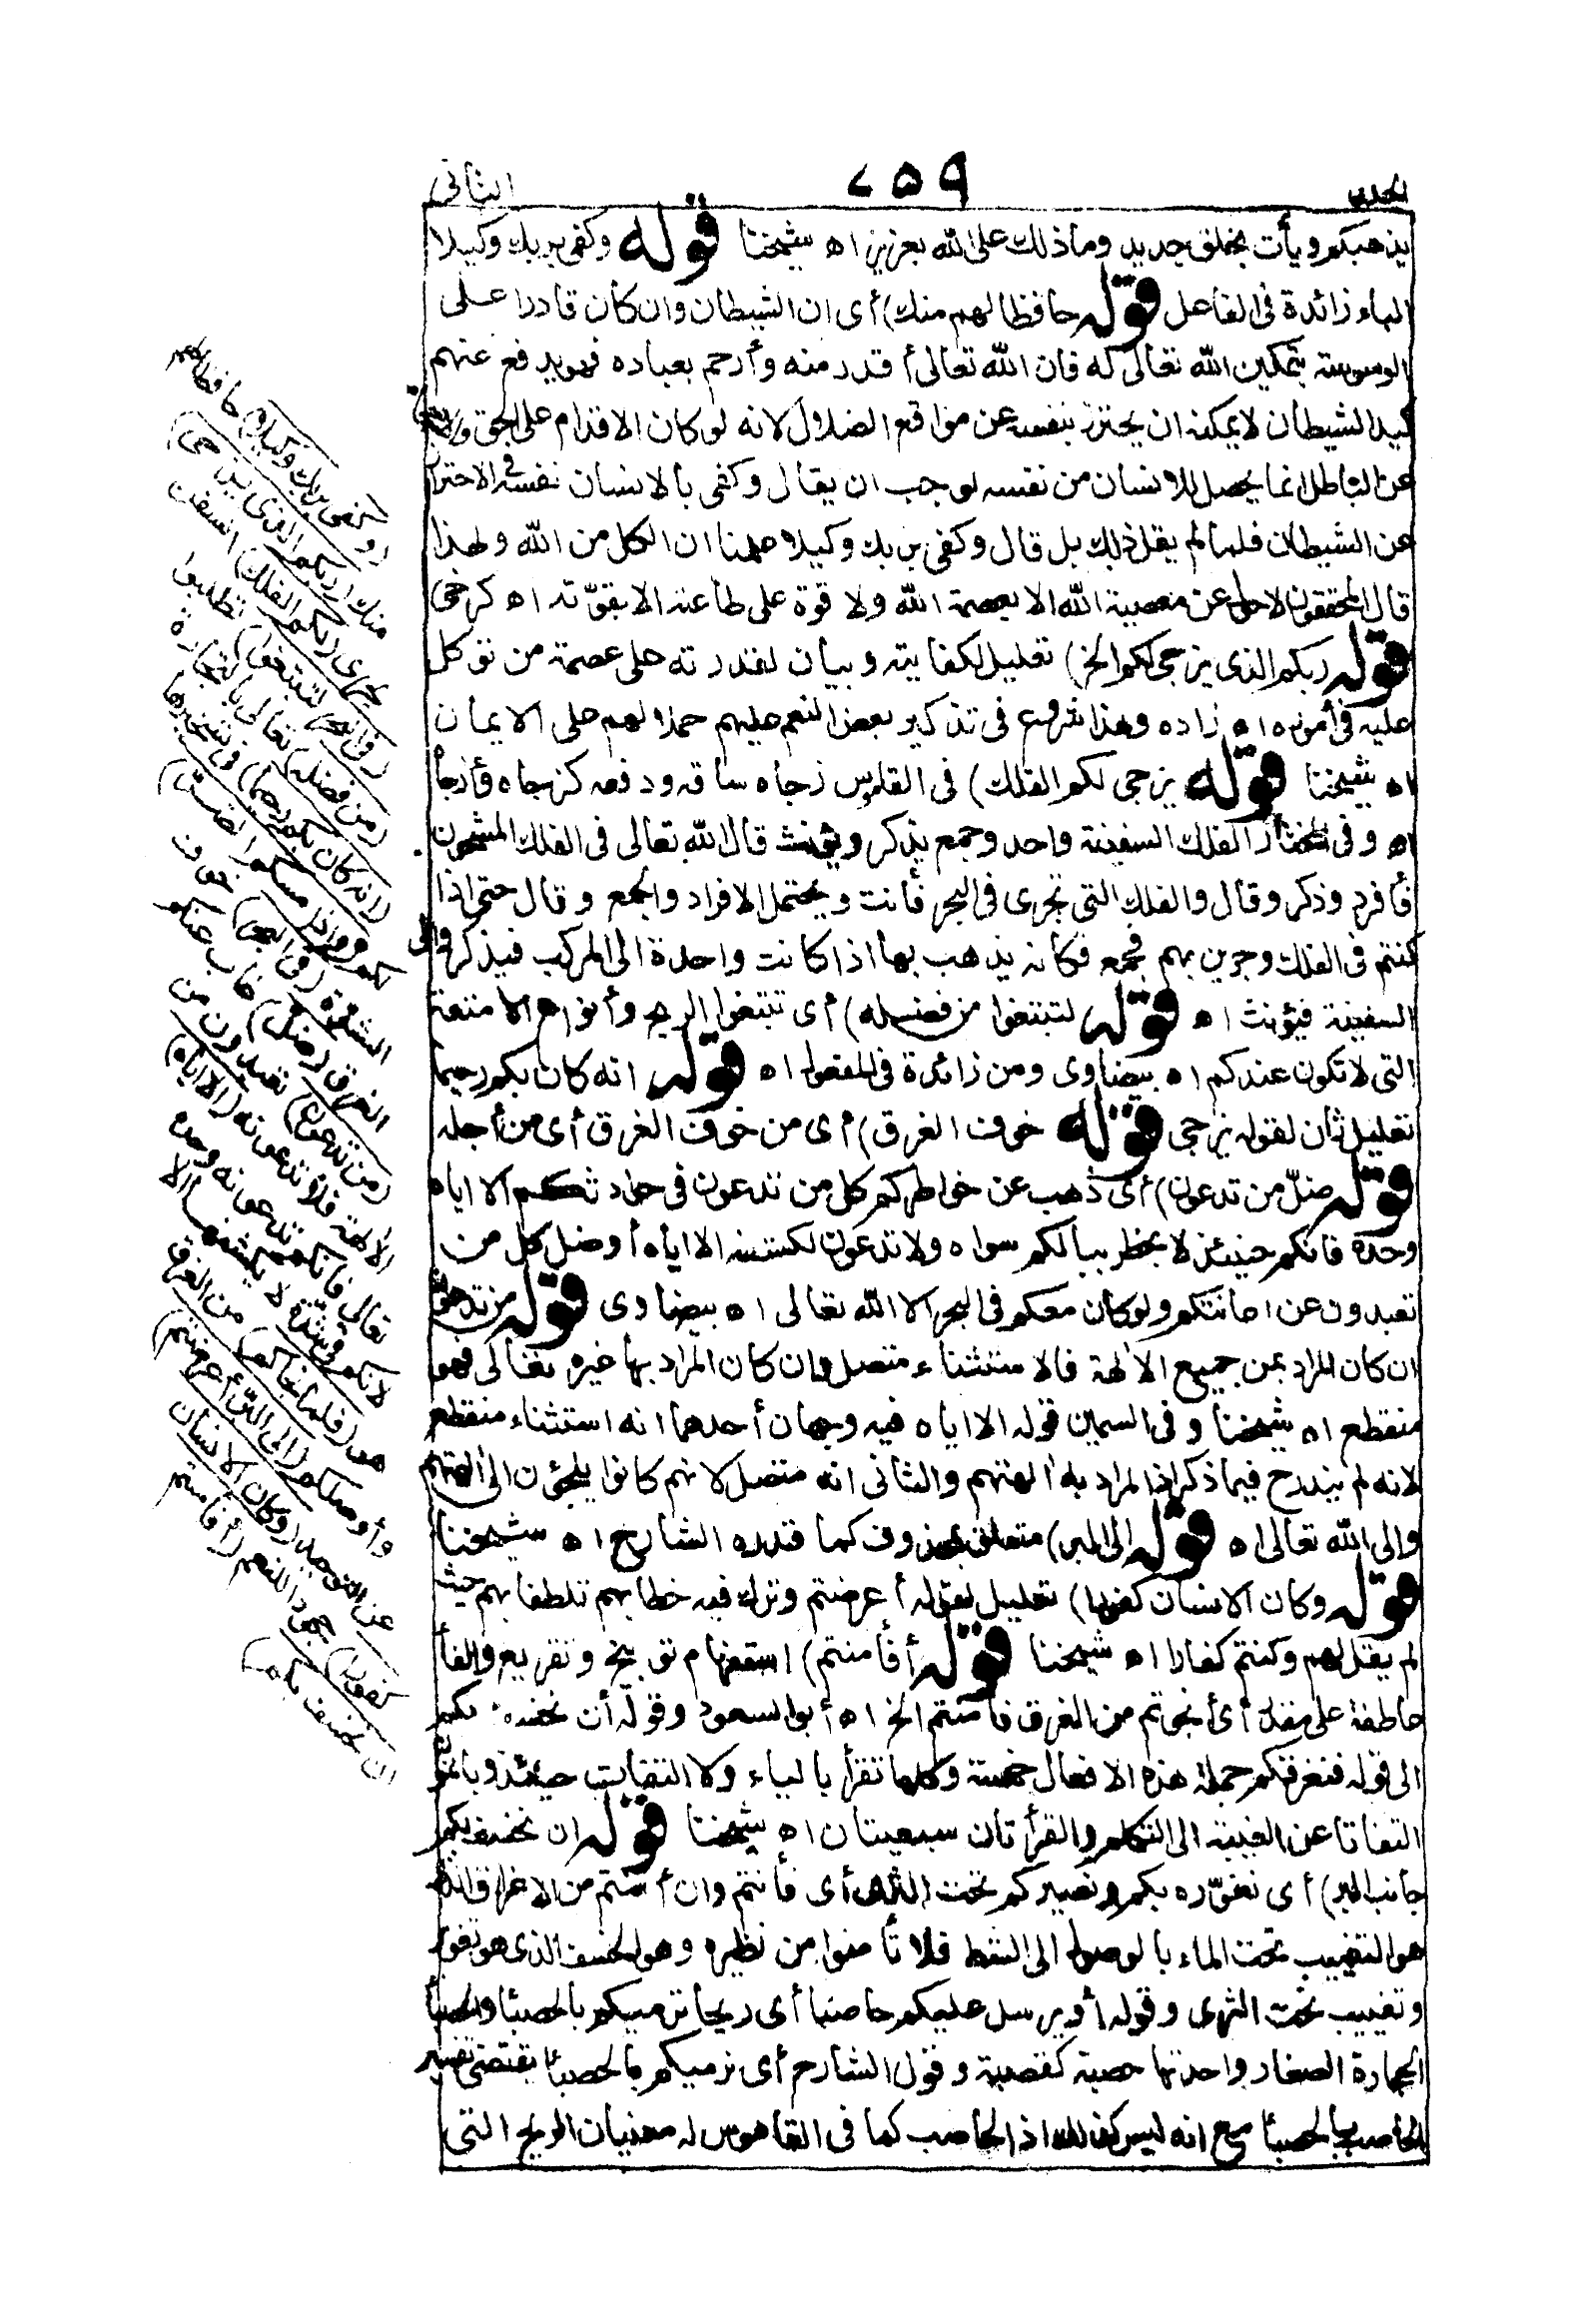 الجزء
٧٥٩
الثانى
يذهبكم ويأت بخلق جديد وما ذلك على الله بعزيز اه شيخنا قوله وكفى بربك وكيلا
الباء زائدة فى الفاعل قوله حافظا لهم منك) أى ان الشيطان وان كان قادرا على
الوسوسة بتمكين الله تعالى له فان الله تعالى أقدر منه وأرحم بعباده فهو يدفع عنهم
كيد الشيطان لا يمكنه ان يحترز بنفسه عن مواقع الضلال لانه لو كان الاقدام على الحق و
عن الباطل انما يحصل للانسان من نفسه لوجب ان يقال وكفى بالانسان نفسه فى الاحتراز
عن الشيطان فلما لم يقل ذلك بل قال وكفى بربك وكيلا علمنا ان الكل من الله ولهذا
قال المحققون لا حول عن معصية الله الا بعصمة الله ولا قوة على طاعته الا بقوّته اه كرخى
قوله ربكم الذى يزجى لكم الخ) تعليل لكفايته وبيان لقدرته على عصمة من توكل
عليه فى أموره اه زاده وهذا شروع فى تذكير بعض النعم عليهم حملا لهم على الايمان
اه شيخنا قوله يزجى لكم الفلك) فى القاموس زجاه ساقه ودفعه كزجاه وأزجاه
اه وفى المختار الفلك السفينة واحد وجمع يذكر ويؤنث قال الله تعالى فى الفلك المشحون
فأفرد وذكر وقال والفلك التى تجرى فى البحر فأنث ويحتمل الافراد والجمع وقال حتى اذا
كنتم فى الفلك وجرين بهم فجمع فكأنه يذهب بها اذا كانت واحدة الى المركب فيذكر والى
السفينة فيؤنث اه قوله لتبتغوا من فضله) أى تبتغوا الربح وأنواع الامتعة
التى لا تكون عندكم اه بيضاوى ومن زائدة فى المفعول اه قوله انه كان بكم رحيما
تعليل ثان لقوله يزجى قوله خوف الغرق) أى من خوف الغرق أى من أجله
قوله ضلّ من تدعون) أى ذهب عن خواطركم كل من تدعون فى حوادثكم الا اياه
وحده فانكم حينئذ لا يخطر ببالكم سواه ولا تدعون لكشفه الا اياه أو ضل كل من
تعبدون عن اعانتكم ولو كان معكم فى البحر الا الله تعالى اه بيضاوى قوله من تدعون
ان كان المراد بمن جميع الالهة فالاستثناء متصل وان كان المراد بها غيره تعالى فهو
منقطع اه شيخنا وفى السمين قوله الا اياه فيه وجهان أحدهما انه استثناء منقطع
لانه لم يندرج فيما ذكر اذ المراد به الهتهم والثانى انه متصل لانهم كانوا يلجؤن الى الهتهم
والى الله تعالى اه قوله الى البر) متعلق بمحذوف كما قدره الشارح اه شيخنا
قوله وكان الانسان كفورا) تعليل لقوله أعرضتم وترك فيه خطابهم تلطفا بهم حيث
لم يقل لهم وكنتم كفارا اه شيخنا قوله أفأمنتم) استفهام توبيخ وتقريع والفاء
عاطفة على مقدر أى أنجوتم من الغرق فأمنتم الخ اه أبو السعود وقوله أن نخسف بكم
الى قوله فنغرقكم جملة هذه الافعال خمسة وكلها تقرأ بالياء ولا التفات حينئذ وبالنون
التفاتا عن الغيبة الى التكلم والقراءتان سبعيتان اه شيخنا قوله ان نخسف بكم
جانب البر) أى نغوّره بكم ونصيركم تحت الثرى أى فأنتم وان أمنتم من الاغراق الذى
هو التغييب تحت الماء بالوصول الى الشط فلا تأمنوا من نظيره وهو الخسف الذى هو تغور
وتغييب تحت الثرى وقوله أو يرسل عليكم حاصبا أى ريحا ترميكم بالحصباء والحصباء
الحجارة الصغار واحدتها حصبة كقصبة وقول الشارح أى نرميكم بالحصباء يقتضى تفسير
الحاصب بالحصباء مع انه ليس كذلك اذ الحاصب كما فى القاموس له معنيان الريح التى
(وكفى بربك وكيلا) حافظا لهم
منك (ربكم الذى يزجى)
يجرى (لكم الفلك) السفن
(فى البحر لتبتغوا) تطلبوا
(من فضله) تعالى بالتجارة
(انه كان بكم رحيما) فى تسخيرها
لكم (واذا مسكم الضر)
الشدة (فى البحر) خوف
الغرق (ضل) غاب عنكم
(من تدعون) تعبدون من
الالهة فلا تدعونه (الا اياه)
تعالى فانكم تدعونه وحده
لانكم فى شدة لا يكشفها الا
هو (فلما نجاكم) من الغرق
وأوصلكم (الى البر أعرضتم)
عن التوحيد (وكان الانسان
كفورا) جحودا للنعم (أفأمنتم
ان نخسف بكم)